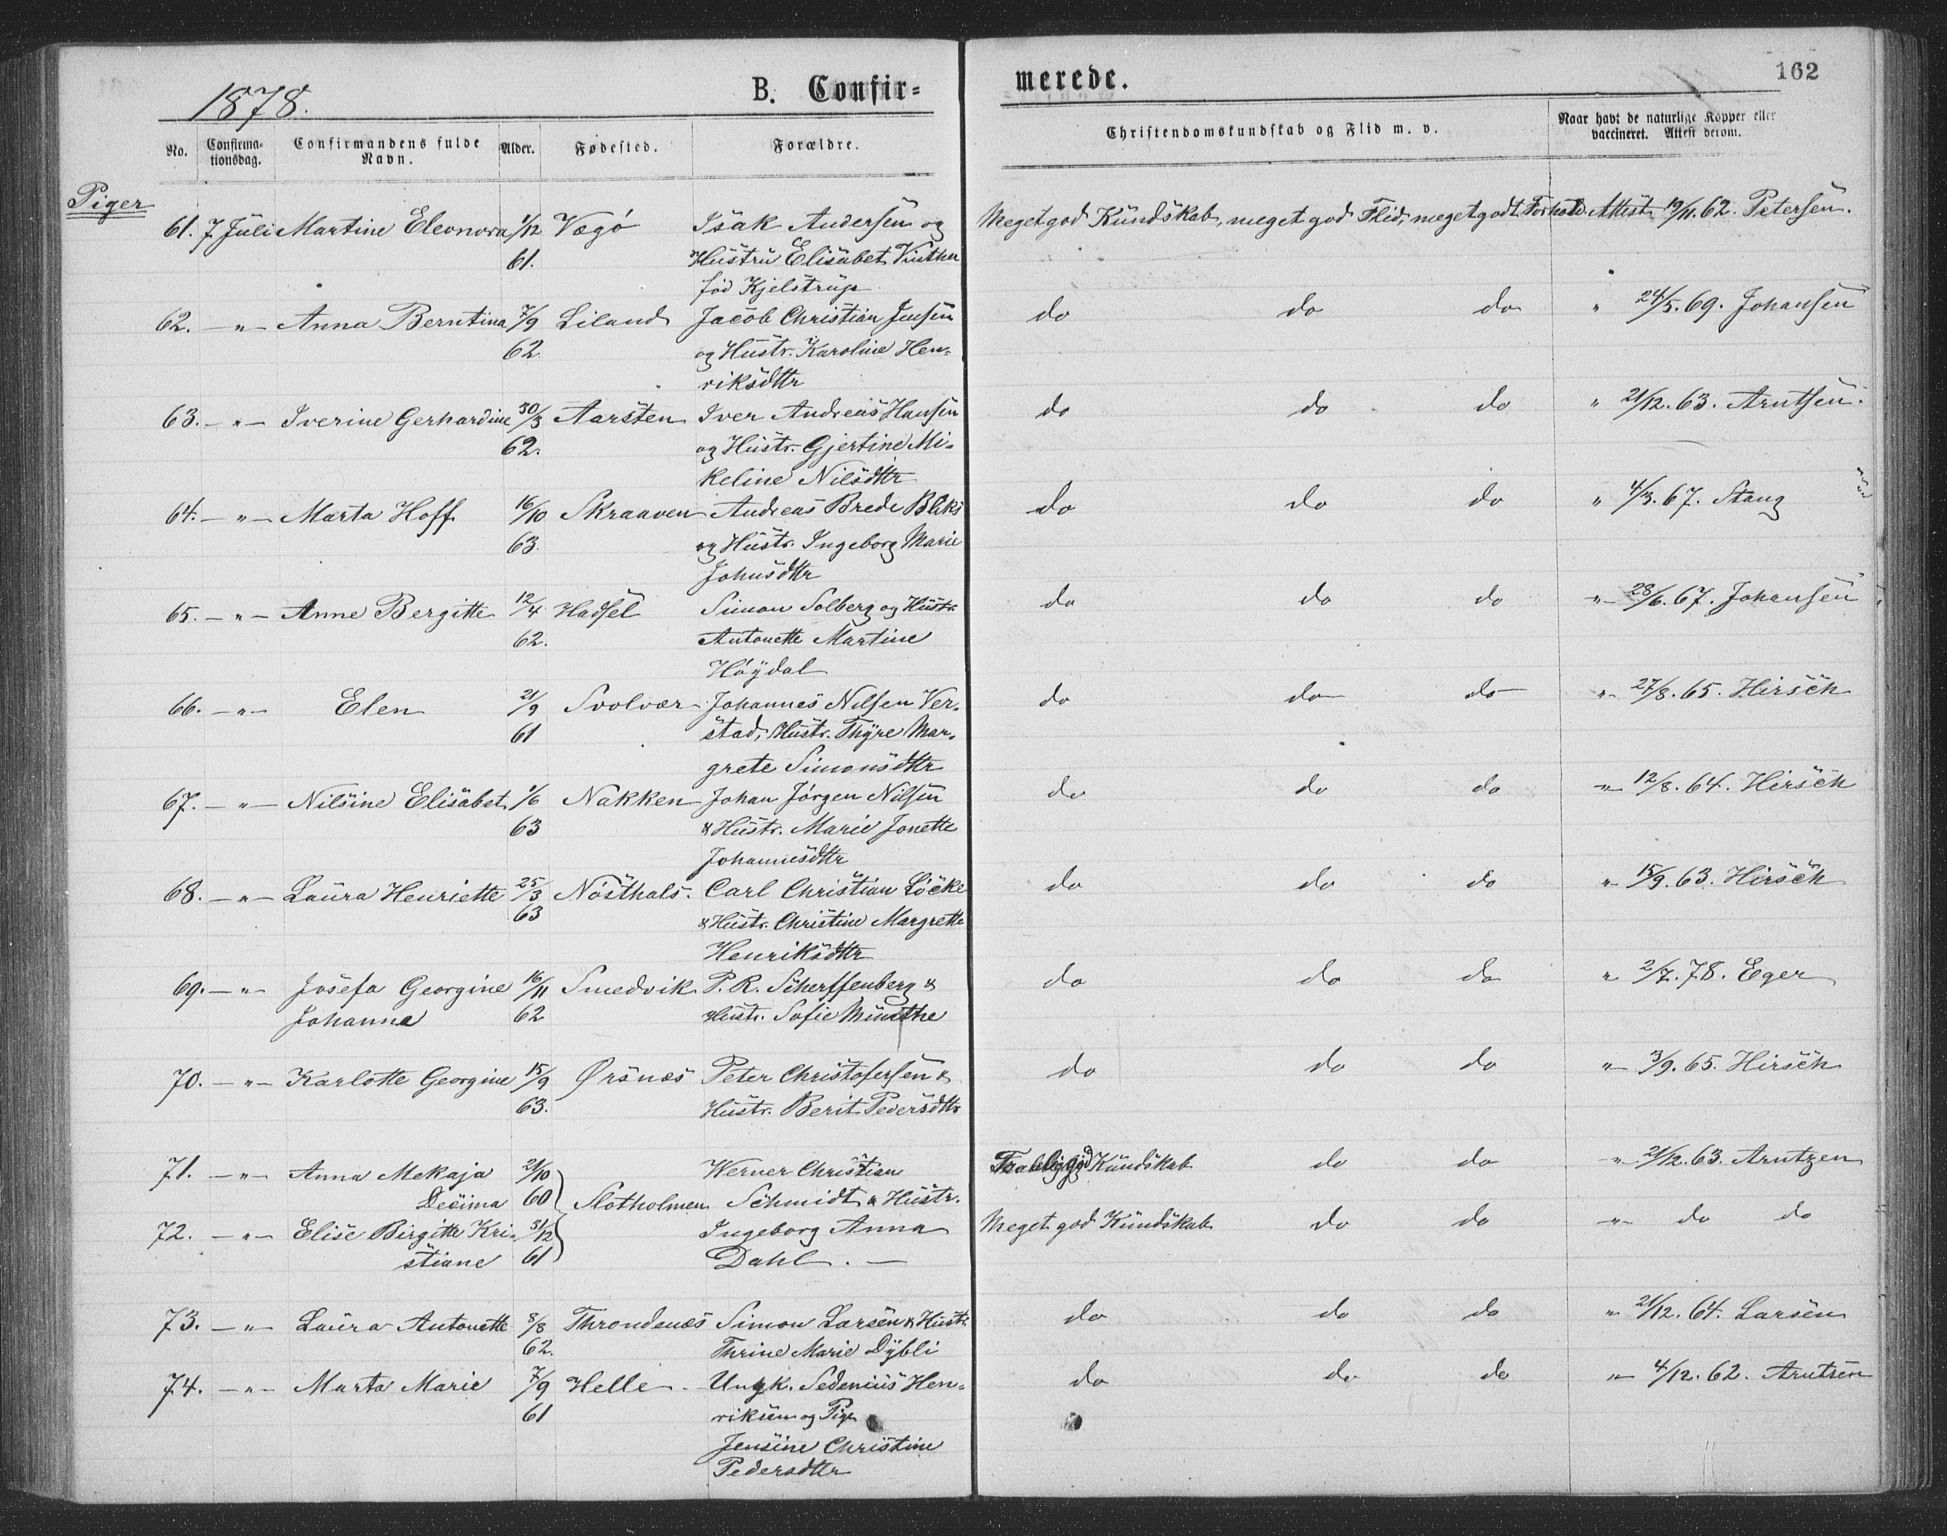 162
1878.
B. Confirmerede.
No. Confirmationsdag. Confirmandens fulde Navn. Alder. Fødested. Forældre. Christendomskundskab og Flid m. v. Naar havt de naturlige Kopper eller vaccineret. Attest derom.
Piger
61. 7 Juli Martine Eleonora 1/12 Vægø Isak Andersen og Meget god Kundskab, meget god Flid, meget godt Forhold Attest 19/11. 62. Petersen.
61. Hustru Elisabet
fød Kjelstrup
62. — " — Anna Berntina 7/9 Liland Jacob Christian Jensen do do do " 24/5. 69. Johansen
62. og Hustr. Karoline Hen-
riksdttr
63. — " — Iverine Gerhardine 30/3 Aarsten Iver Andreas Hansen do do do " 21/12. 63. Arntsen.
62. og Hustr. Gjertine Mi-
keline Nilsdttr
64. — " — Marta Hoff 16/10 Skraaven Andreas Brede do do do " 4/3. 67. Stang
63. og Hustr. Ingeborg Marie
Johnsdttr
65. — " — Anne Bergitte 12/4 Hadsel Simon Solberg og Hustr. do do do — " — 28/6. 67. Johansen
62. Antonette Martine
Høydal
66. — " — Elen 21/9 Svolvær Johannes Nilsen Ver- do do do " — 27/8. 65. Hirsch
61 stad, Hustr. Thyre Mar-
grete Simonsdttr
67. — " — Nilsine Elisabet 1/6 Nakken Johan Jörgen Nilsen do do do — " — 12/8. 64. Hirsch
63 & Hustr. Marie Jonette
Johannesdttr
68. — " — Laura Henriette 25/3 Nösthals. Carl Christian Löcke do do do " 15/9. 63. Hirsch
63 & Hustr. Christine Margrette
Henriksdttr
69. — " — Josefa Georgine 16/11 Smedvik P. R. Scherffenberg & do do do " 2/7. 78. Eger
Johanna 62 Hustr. Sofie Münthe
70. — " — Karlotte Georgine 15/9 Ørsnes Peter Christofersen & do do do " — 3/9. 65. Hirsch
63. Hustr. Berit Pedersdttr
71. — " — Anna Mekaja 21/10 Werner Christian Kundskab do do — " — 21/12. 63. Arntzen
Decima 60 Slotholmen Schmidt & Hustr.
72. — " — Elise Birgitte Kri- 31/12 Ingeborg Anna Meget god Kundskab do do — " — do do
stiane 61 Dahl. —
73. — " — Laura Antonette 8/8 Throndenæs Simon Larsen & Hustr. do do do " 21/12. 64. Larsen
62. Thrine Marie Dybli
74. — " — Marta Marie 7/9 Helle. Ungk. Sedenius Hen- do do do " — 4/12. 62. Arntsen
61 riksen og Pige
Jensine Christine
Pedersdttr